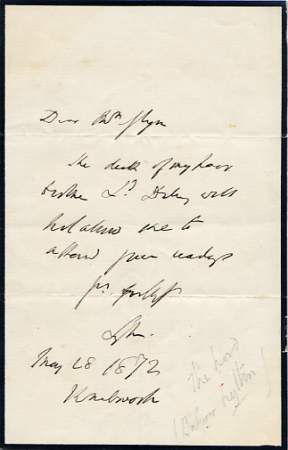 Dear Glyn
the death of my poor
brother Ld Dalling will
not allow me to
attend your readings
Lytton
May 28 1872
Knebworth
The Lord
(Bulwer Lytton)